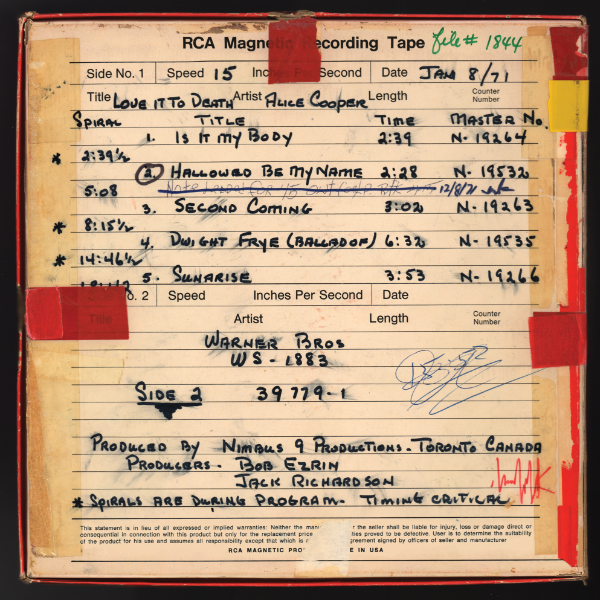 RCA Magnetic Recording Tape file # 1844
Side No. 1 Speed 15 Inches Per Second Date JAN 8/71
Title LOVE IT TO DEATH Artist ALICE COOPER Length Counter Number
SPIRAL TITLE TIME MASTER NO.
1. IS IT MY BODY 2:39 N-19264
* 2:39½
2. HALLOWED BE MY NAME 2:28 N-19532
12/8/71
5:08
3. SECOND COMING 3:02 N-19263
* 8:15½
4. DWIGHT FRYE (BALLAD OF) 6:32 N-19535
* 14:46½
5. SUNARISE 3:53 N-19266
No. 2 Speed Inches Per Second Date
Title Artist Length Counter Number
WARNER BROS
WS-1883
SIDE 2 39779-1
PRODUCED BY NIMBUS 9 PRODUCTIONS - TORONTO CANADA
PRODUCERS - BOB EZRIN
JACK RICHARDSON
* SPIRALS ARE DURING PROGRAM - TIMING CRITICAL
This statement is in lieu of all expressed or implied warranties: Neither the r the seller shall be liable for injury, loss or damage direct or
consequential in connection with this product but only for the replacement price ties proved to be defective. User is to determine the suitability
of the product for his use and assumes all responsibility except that which is greement signed by officers of seller and manufacturer
RCA MAGNETIC E IN USA